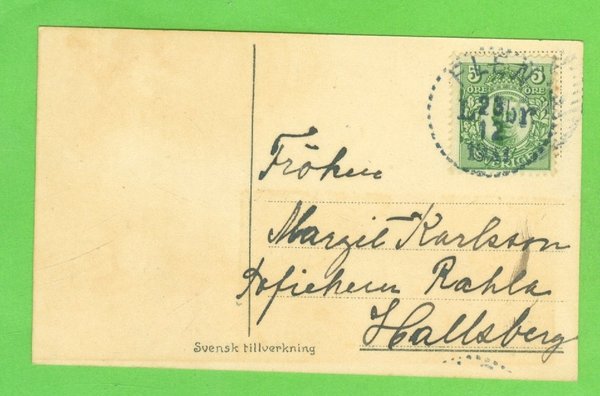 5 5
ÖRE ÖRE
23
12
Fröken
Margit Karlsson
Sofiehem Rahla
Hallsberg
Svensk tillverkning